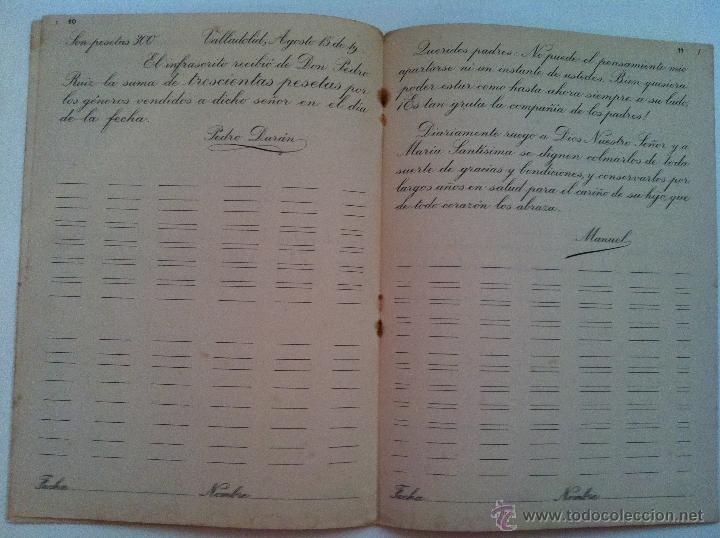 10
Son pesetas 300 Valladolid, Agosto 15 de 19
El infrascrito recibió de Don Pedro
Ruiz la suma de trescientas pesetas por
los géneros vendidos a dicho señor en el día
de la fecha.
Pedro Durán
Fecha Nombre
11
Queridos padres: No puede el pensamiento mío
apartarse ni un instante de ustedes. Bien quisiera
poder estar como hasta ahora siempre a su lado.
¡Es tan grata la compañía de los padres!
Diariamente ruego a Dios Nuestro Señor y a
María Santísima se dignen colmarlos de toda
suerte de gracias y bendiciones, y conservarlos por
largos años en salud para el cariño de su hijo, que
de todo corazón los abraza.
Manuel
Fecha Nombre
www.todocoleccion.net